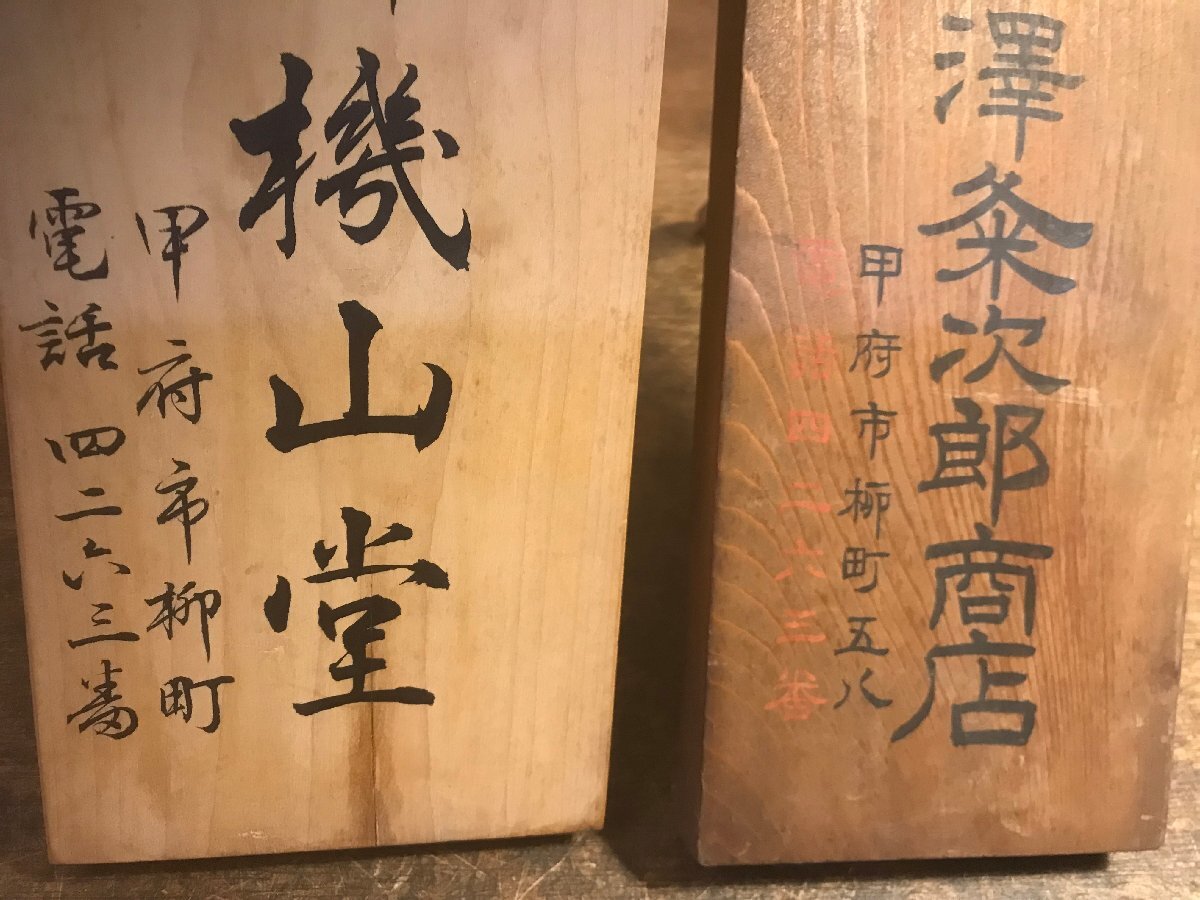 澤粂次郎商店
甲府市柳町五八
電話四二六三番
機山堂
甲府市柳町
電話四二六三番